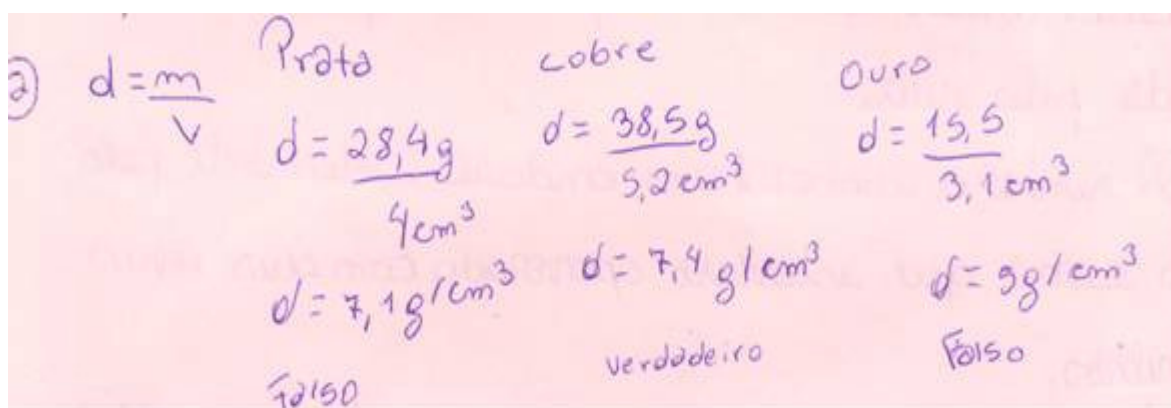 2) d = m/V
Prata
d = 28,4g/4cm³
d = 7,1g/cm³
Falso
cobre
d = 38,5g/5,2cm³
d = 7,4g/cm³
verdadeiro
Ouro
d = 15,5/3,1cm³
d = 9g/cm³
Falso